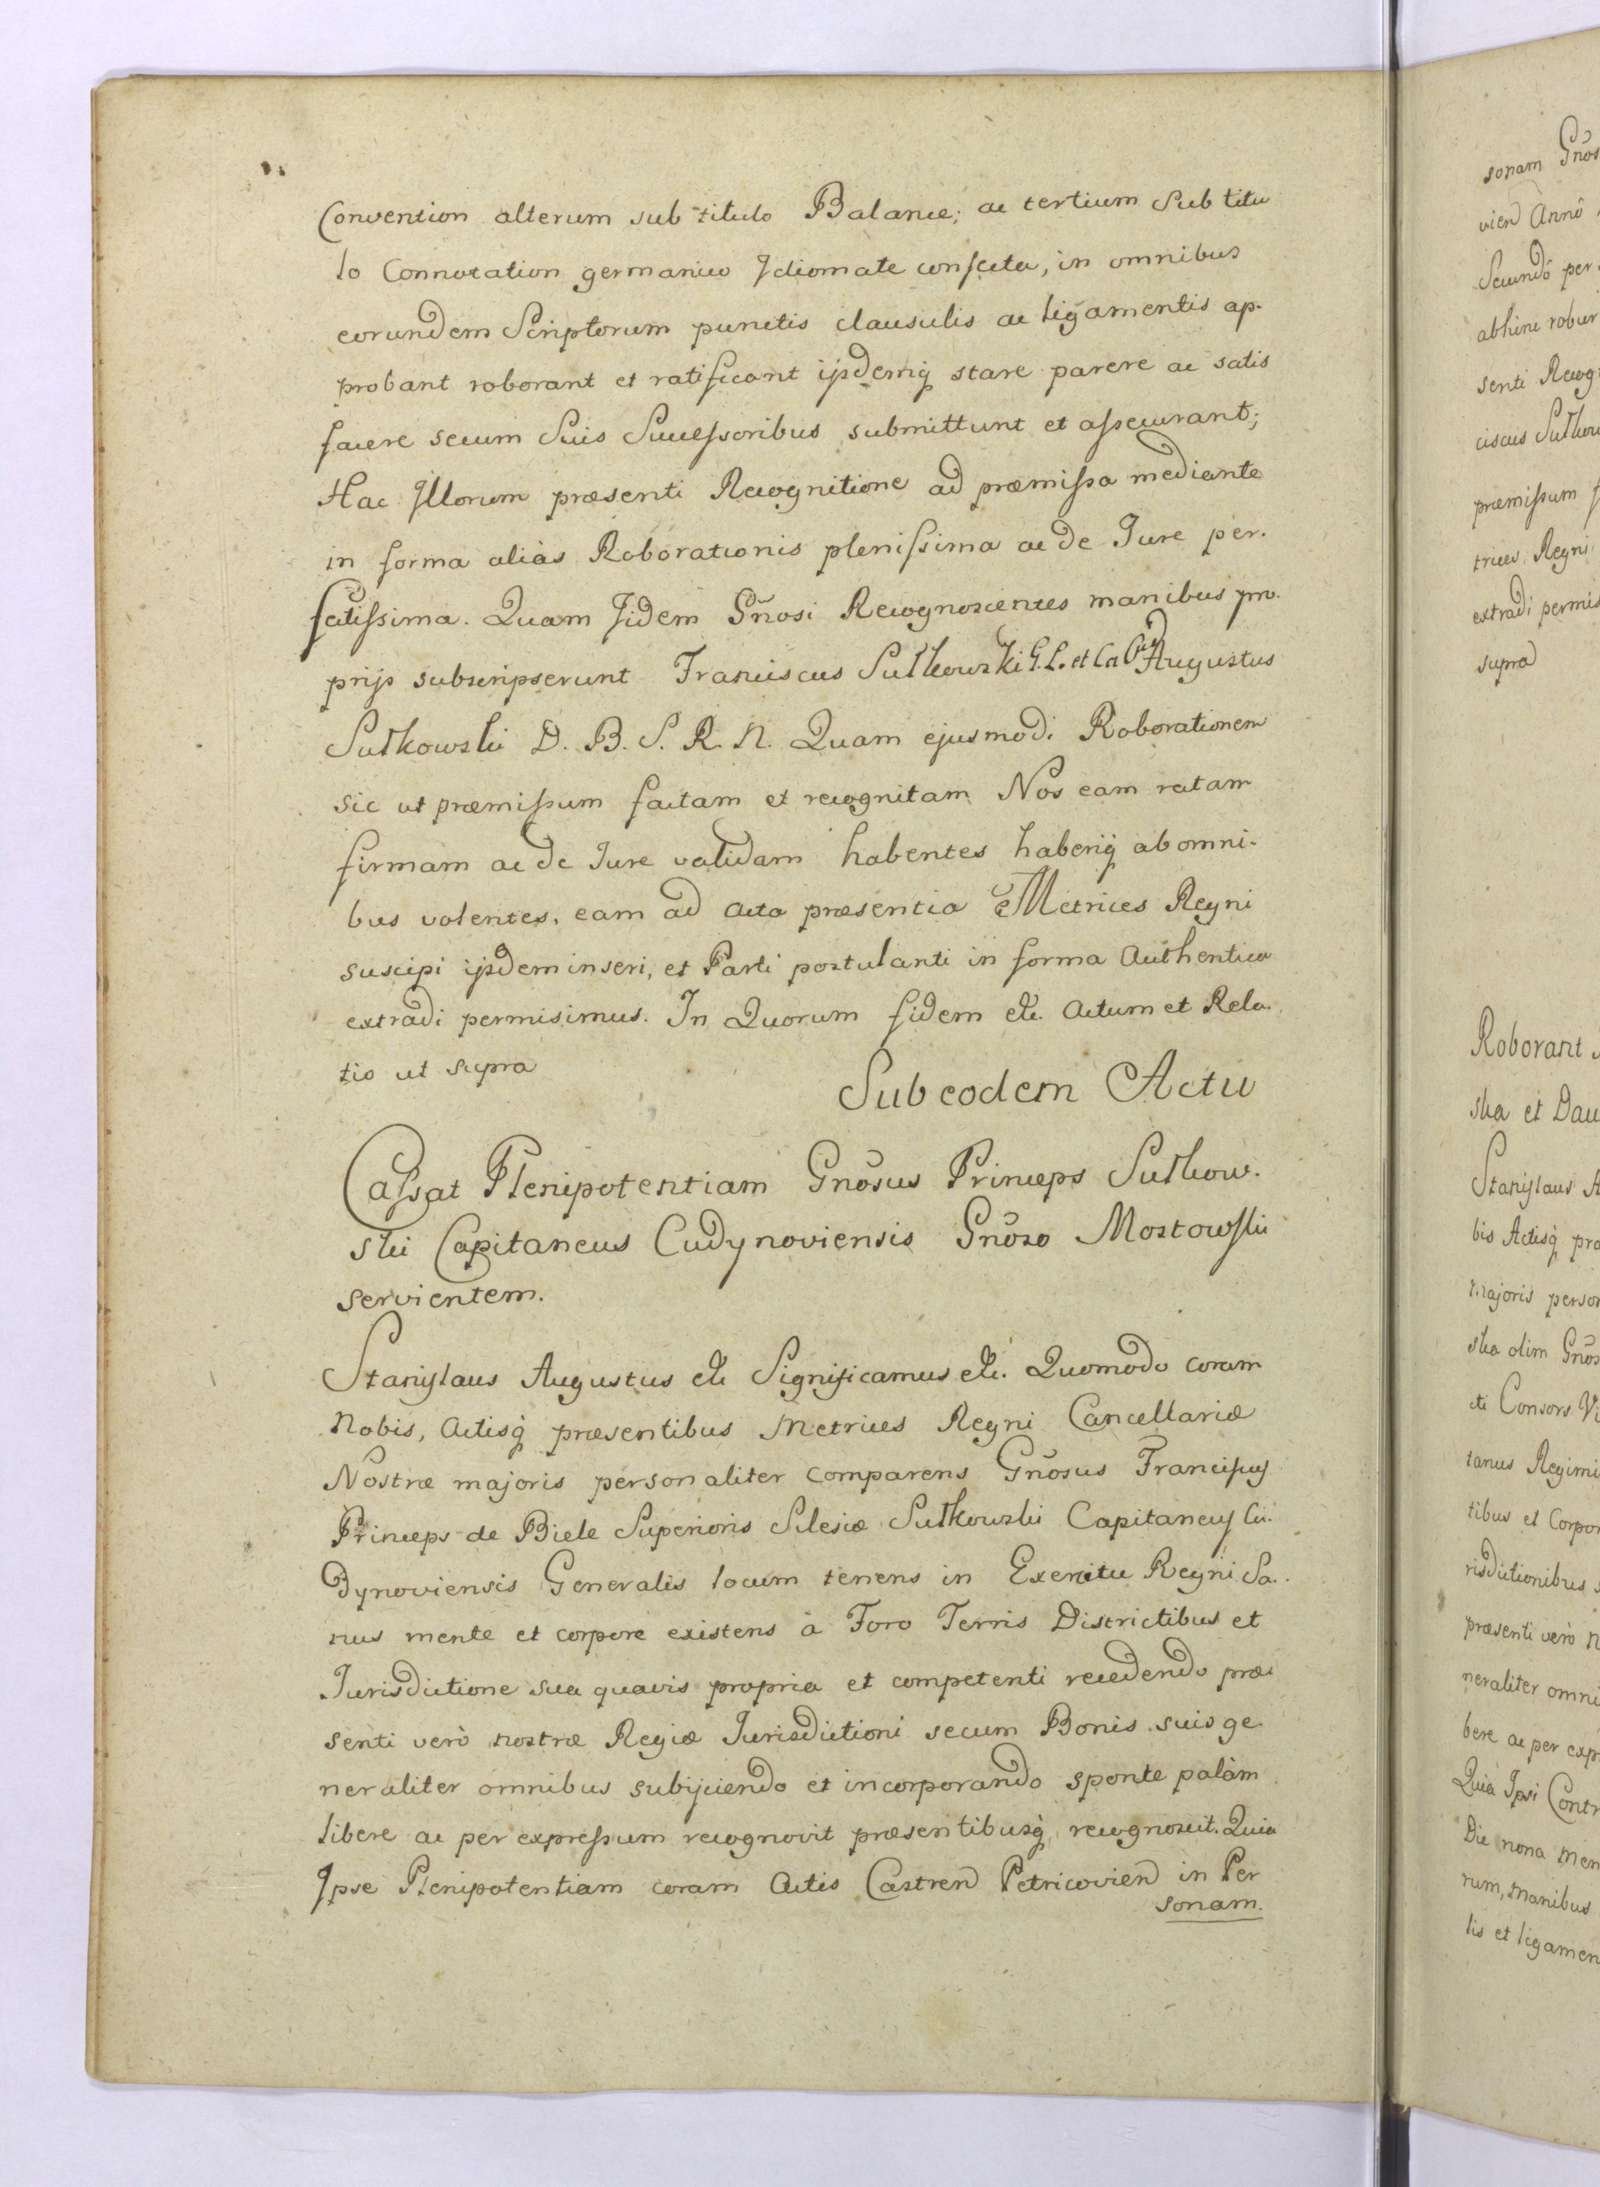 Convention alterum sub titulo Balance; ac tertium Sub titu
lo Connotation germanico Idiomate confecta, in omnibus
eorundem Scriptorum punctis clausulis ac ligamentis ap-
probant roborant et ratificant ijsdemq̃ stare parere ac satis
facere secum Suis Successoribus submittunt et assecurant;
Hac Illorum præsenti Recognitione ad præmissa mediante
in forma aliàs Roborationis plenissima ac de Jure per-
fectissima. Quam Iidem Gñosi Recognoscentes manibus pro-
prijs subscripserunt Franciscus Sułkowski G. L. et Augustus
Sułkowski D. B. S. R. N. Quam ejusmodi Roborationem
sic ut præmissum factam et recognitam Nos eam ratam
firmam ac de Jure validam habentes haberiq̃ ab omni-
bus volentes, eam ad Acta præsentia Metrices Regni
suscipi ijsdem inseri, et Parti postulanti in forma Authentica
extradi permisimus. In Quorum fidem etc. Actum et Rela-
tio ut supra
Sub eodem Actu
Cassat Plenipotentiam Gnõsus Princeps Sułkow-
ski Capitaneus Cudynoviensis Gnõso Mostowski
servientem.
Stanislaus Augustus etc Significamus etc. Quomodo coram
Nobis, Actisq̃ præsentibus Metrices Regni Cancellariæ
Nostræ majoris personaliter comparens Gnõsus Franciscus
Princeps de Biele Superioris Silesiæ Sułkowski Capitaneus Cu-
dynoviensis Generalis locum tenens in Exercitu Regni Sa-
nus mente et corpore existens à Foro Terris Districtibus et
Jurisdictione sua quavis propria et competenti recedendo præ-
senti verò nostræ Regiæ Jurisdictioni secum Bonis suis ge
neraliter omnibus subijciendo et incorporando sponte palàm
libere ac per expressum recognovit præsentibusq̃ recognoscit. Quia
Ipse Plenipotentiam coram Actis Castren Petricovien in Per
sonam.
sonam Gños
vien Annô
Secundô per
abhinc robur
senti Recog
ciscus Sułkow
præmissum
trices Regni
extradi permis
supra
Roborant
ska et Dau
Stanislaus A
bis Actisq̃ præ
majoris person
ska olim Gnõs
Consors Vi
tanus Regimi
tibus et Corpor
risdictionibus
præsenti verò n
neraliter omni
bere ac per exp
Quia Ipsi Contr
Die nona Men
rum, manibus
lis et ligamen